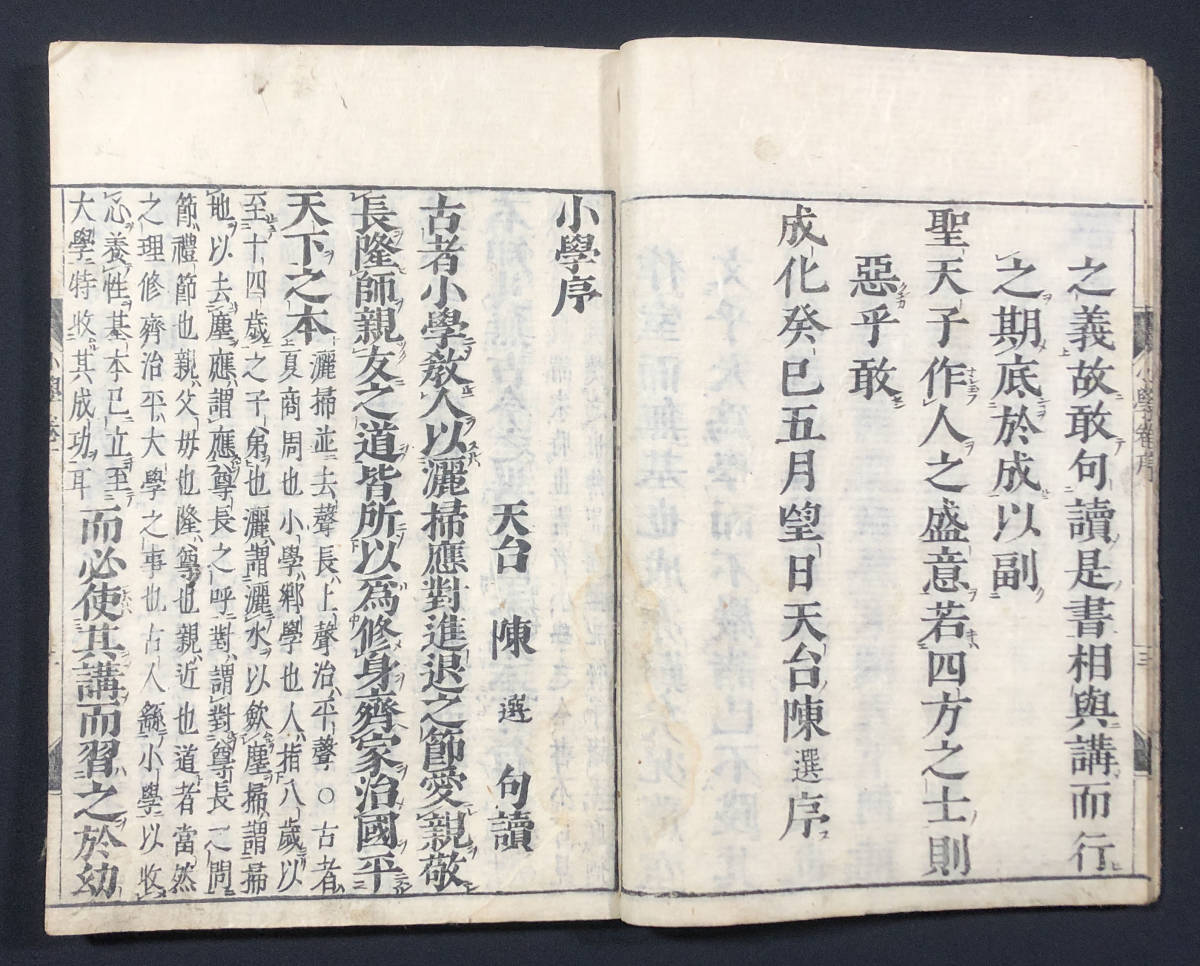 之義故敢句讀是書相與講而行
之期底於成以副
聖天子作人之盛意若四方之士則
惡乎敢
成化癸巳五月望日天台陳選序
小學序
天台 陳選 句讀
古者小學教人以灑掃應對進退之節愛親敬
長隆師親友之道皆所以爲修身齊家治國平
天下之本
灑掃並去聲長上聲治平聲○古者
夏商周也小學鄉學也人指八歲以
至十四歲之子弟也灑謂灑水以斂塵掃謂掃
地以去塵應謂應尊長之呼對謂對尊長之問
節禮節也親父母也隆尊也親近也道者當然
之理修齊治平大學之事也古人繇小學以收
心養性基本已立至
大學特收其成功耳
而必使其講而習之於幼